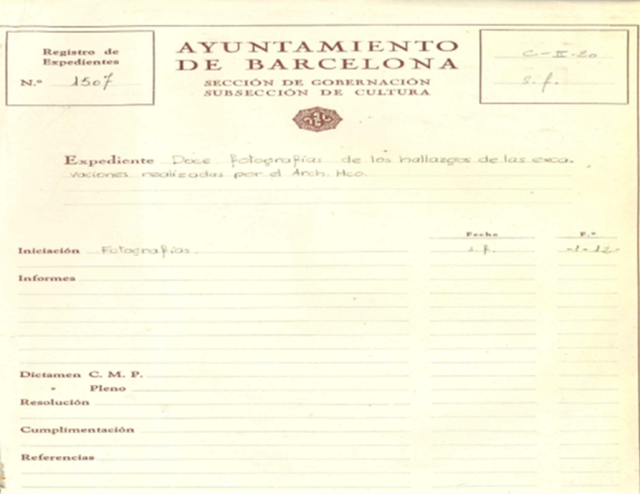 Registro de
Expedientes
N.º 1507
AYUNTAMIENTO
DE BARCELONA
SECCIÓN DE GOBERNACIÓN
SUBSECCIÓN DE CULTURA
C-II-20
s. f.
Expediente Doce fotografías de los hallazgos de las exca-
vaciones realizadas por el Arch. Hco.
Fecha F.º
Iniciación Fotografías. s. f. -1-12-
Informes
Dictamen C. M. P.
" Pleno
Resolución
Cumplimentación
Referencias